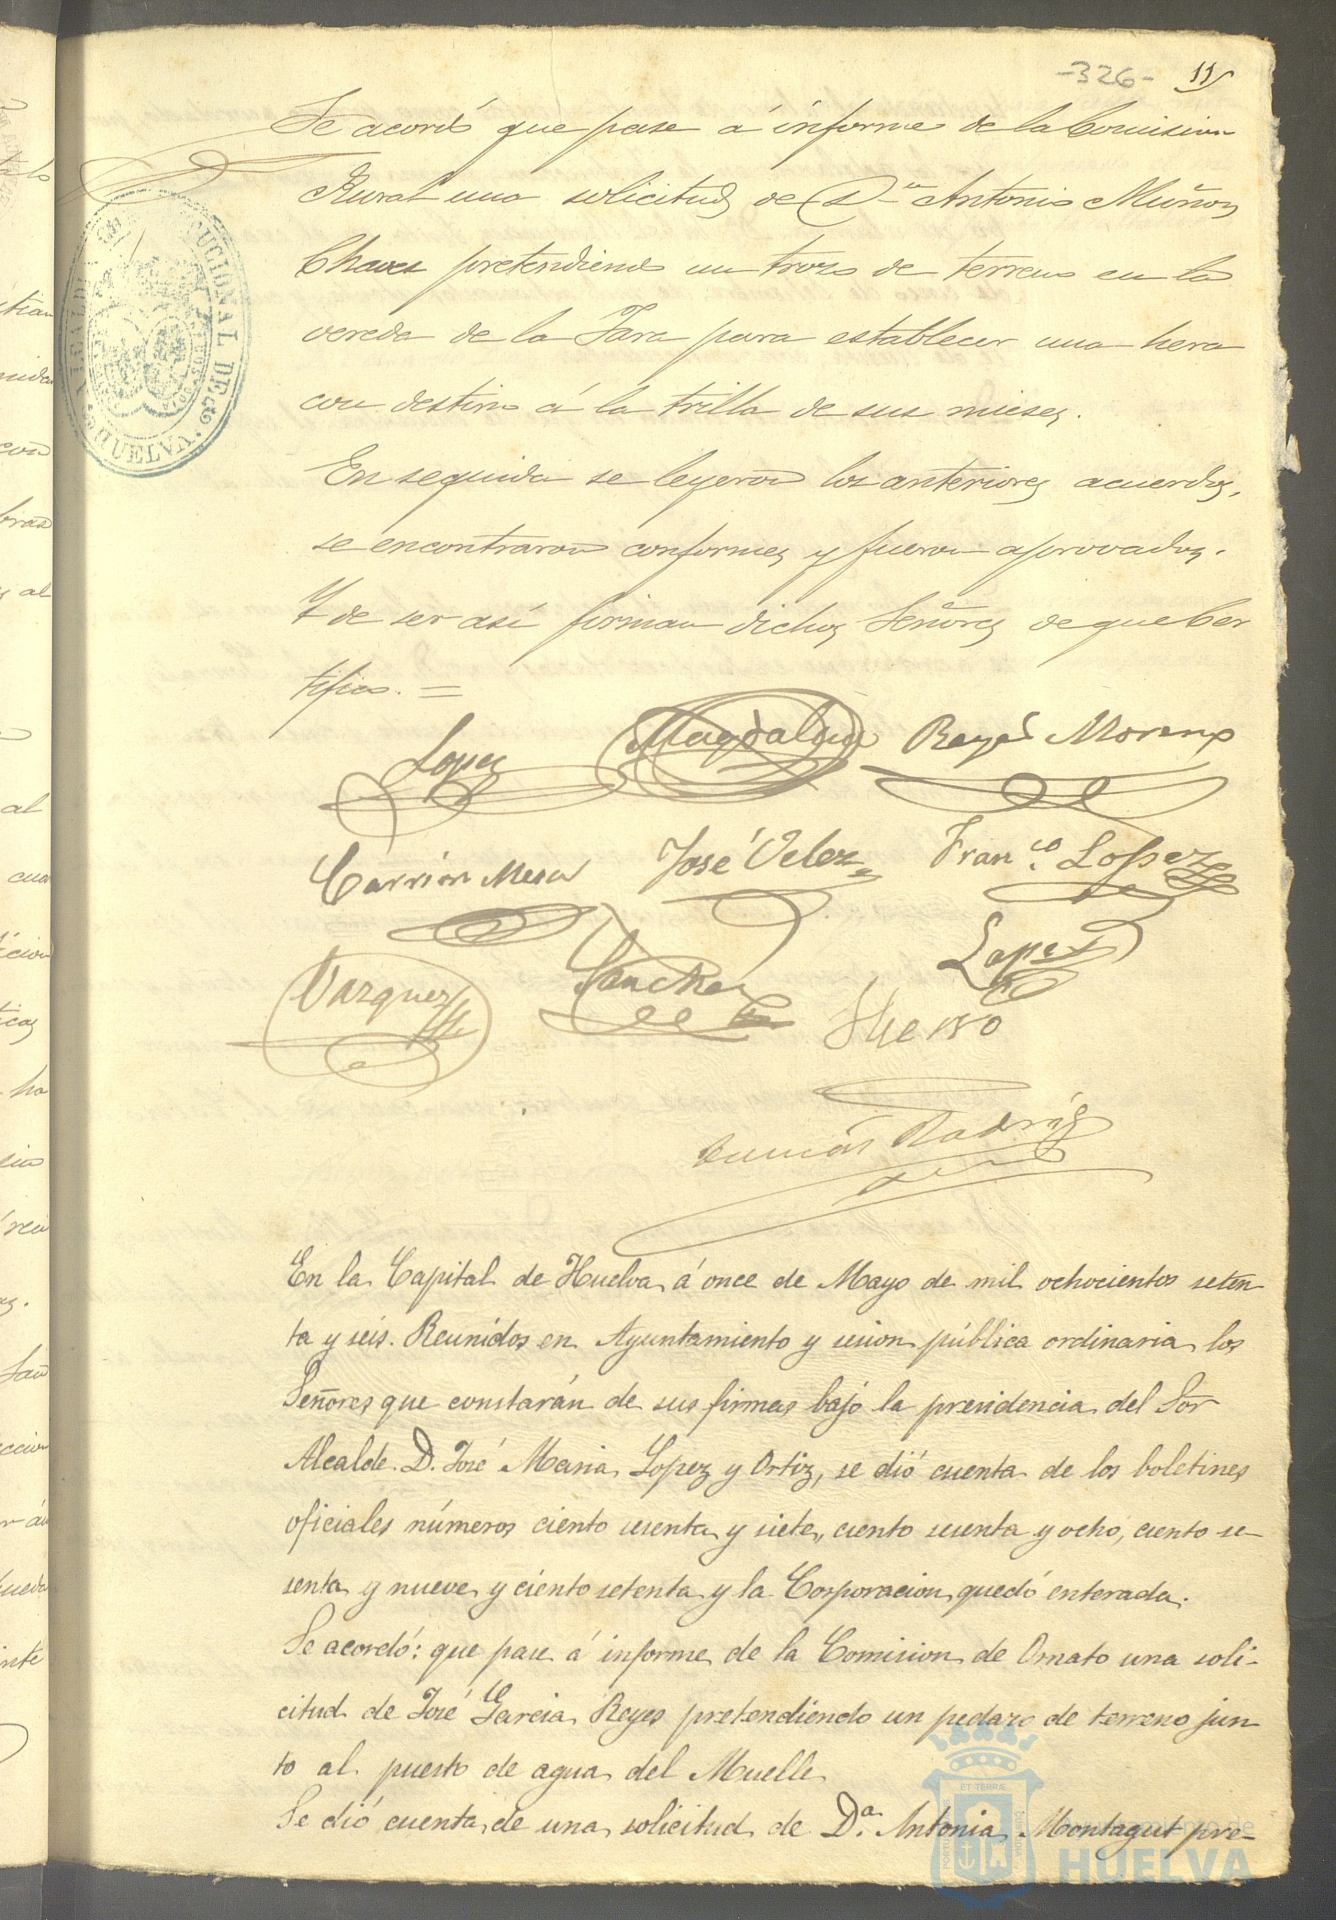 -326- 11
Se acordó que pase á informe de la Comision
Rural una solicitud de Dn Antonio Muñoz
Chaves pretendiendo un trozo de terreno en la
vereda de la Jara para establecer una hera
con destino á la trilla de sus mieses.
En seguida se leyeron los anteriores acuerdos,
se encontraron conformes y fueron aprovados.
Y de ser así firman dichos Señores de que Cer
tifico. =
Lopez Magdalena Reyes Moreno
Carrion Mesa José Velez Franco Lopez
Vazquez Sanchez Lopez
En la Capital de Huelva á once de Mayo de mil ochocientos seten-
ta y seis. Reunidos en Ayuntamiento y sesion pública ordinaria los
Señores que constarán de sus firmas bajo la presidencia del Sor
Alcalde D. José Maria Lopez y Ortiz, se dió cuenta de los boletines
oficiales números ciento sesenta y siete, ciento sesenta y ocho, ciento se-
senta y nueve y ciento setenta y la Corporacion quedó enterada.
Se acordó: que pase á informe de la Comision de Ornato una soli-
citud de José Garcia Reyes pretendiendo un pedazo de terreno jun
to al puesto de agua del Muelle
Se dió cuenta de una solicitud de Da. Antonia Montagut pre-
ALCALDIA CONSTITUCIONAL DE HUELVA.
Ayuntamiento de
HUELVA